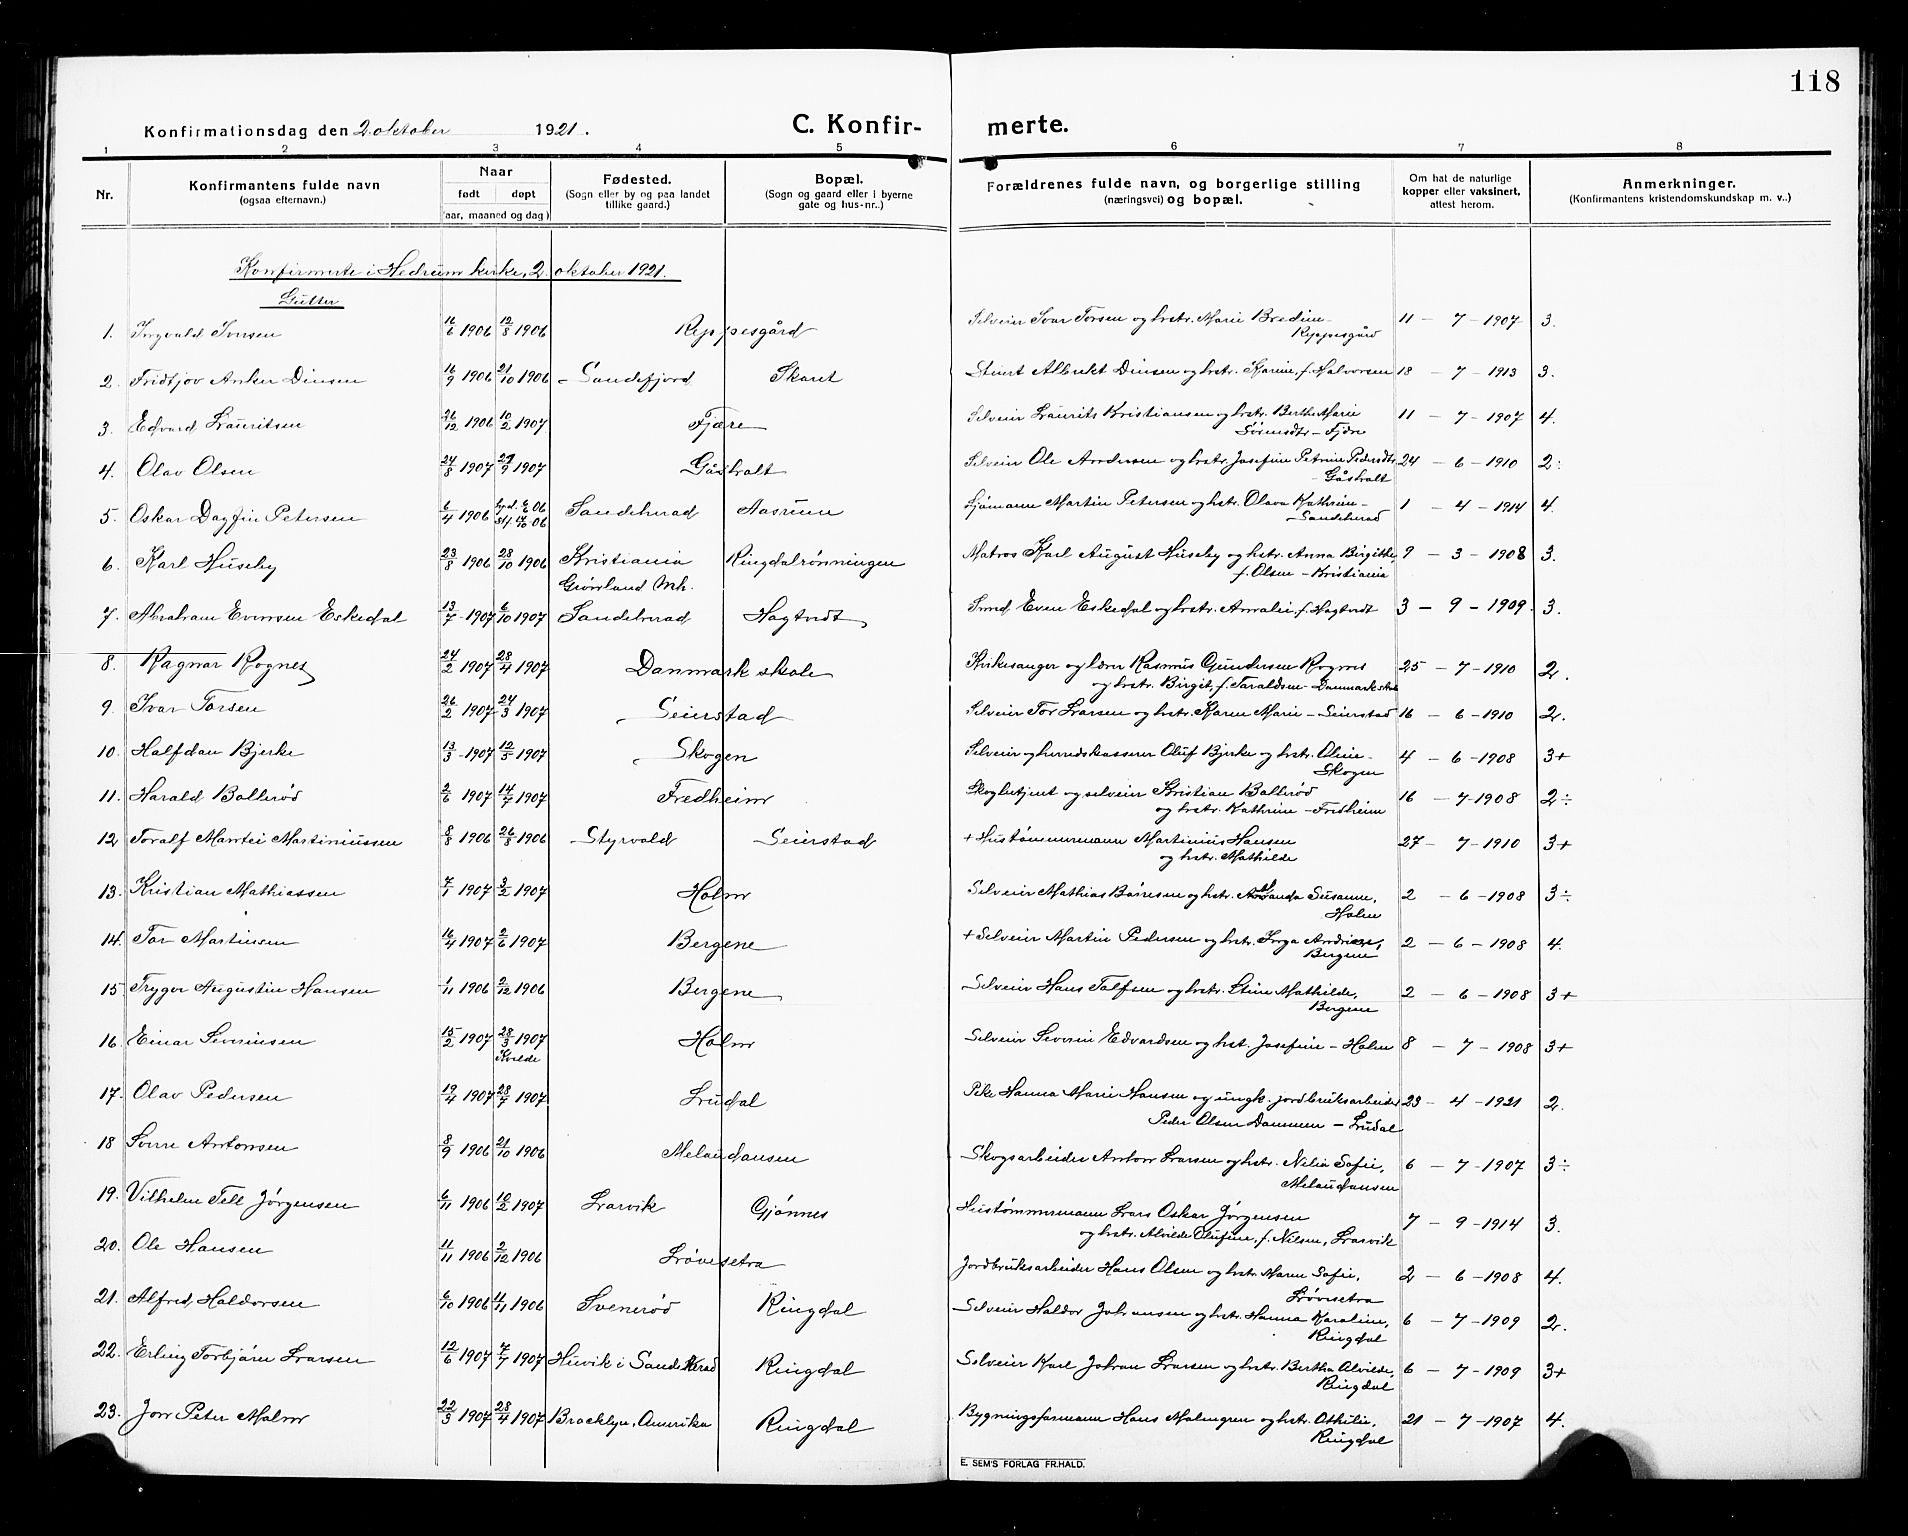 118
Konfirmationsdag den 2 oktober 1921. C. Konfir- merte.
1 2 3 4 5 6 7 8
Nr. Konfirmantens fulde navn (ogsaa efternavn.) Naar født døpt (aar, maaned og dag) Fødested. (Sogn eller by og paa landet tillike gaard.) Bopæl. (Sogn og gaard eller i byerne gate og hus-nr..) Forældrenes fulde navn, og borgerlige stilling (næringsvei) og bopæl. Om hat de naturlige kopper eller vaksinert, attest herom. Anmerkninger. (Konfirmantens kristendomskundskap m. v..)
Konfirmerte i Hedrum kirke, 2. oktober 1921.
Gutter
1. Ingvald Ivarsen 16/6 1906 12/8 1906 Ryppesgård Selveier Ivar Torsen og hstr. Marie Bredine - 11 - 7 - 1907 3.
Ryppesgård
2. Fridtjov Anker Dinsen 16/9 1906 21/10 1906 Sandefjord Skaret Stuert Albrekt Dinsen og hstr. Karine, f. Halvorsen 18 - 7 - 1913 3.
3. Edvard Lauritsen 26/12 1906 10/2 1907 Fjære Selveier Laurits Kristiansen og hstr. Berthe Marie 11 - 7 - 1907 4.
Sørensdtr - Fjære
4. Olav Olsen 24/8 1907 29/9 1907 Gåsholt Selveier Ole Andersen og hstr. Josefine Petrine Pedersdtr 24 - 6 - 1910 2÷
- Gåsholt
5. Oskar Dagfin Petersen 6/4 1906 Sandeherad Aasrum Sjømann Martin Petersen og hstr. Olava Kathrine - 1 - 4 - 1914 4.
Sandeherad
6. Karl Huseby 23/8 1906 28/10 1906 Kristiania Ringdalrønningen Matros Karl August Huseby og hstr. Anna Birgitte, 9 - 3 - 1908 3.
Grønland Mh. f. Olsen - Kristiania
7. Abraham Evensen Eskedal 13/7 1907 6/10 1907 Sandeherad Hagtvedt Smed Even Eskedal og hstr. Amalie f. Hagtvedt 3 - 9 - 1909. 3.
8. Ragnar Rognes 24/2 1907 28/4 1907 Danmark skole Kirkesanger og lærer Rasmus Gundersen Rognes 25 - 7 - 1910 2.
og hstr. Birgit, f. Taraldsen - Danmark skole
9. Ivar Torsen 26/2 1907 24/3 1907 Seierstad Selveier Tor Larsen og hstr. Karen Marie - Seierstad 16 - 6 - 1910 2.
10. Halfdan Bjerke 13/3 1907 12/5 1907 Skogen Selveier og herredskasserer Oluf Bjerke og hstr. Oline - 4 - 6 - 1908 3+
Skogen
11. Harald Bollerød 2/6 1907 14/7 1907 Fredheim Skogbetjent og selveier Kristian Bollerød 16 - 7 - 1908 2÷
og hstr. Kathrine - Fredheim
12 Toralf Mantei Martiniussen 8/8 1906 26/8 1906 Styrvold Seierstad + Hustømmermann Martinius Hansen 27 - 7 - 1910 3+
og hstr. Mathilde
13. Kristian Mathiassen 7/1 1907 3/2 1907 Holm Selveier Mathias Børresen og hstr. Amanda Susanne, 2 - 6 - 1908 3÷
Holm
14. Tor Martinsen 16/4 1907 2/6 1907 Bergene + Selveier Martin Pedersen og hstr. Inga Andrine, 2 - 6 - 1908 4.
Bergene
15 Trygve Augustin Hansen 1/11 1906 2/12 1906 Bergene Selveier Hans Tolfsen og hstr. Stine Mathilde, 2 - 6 - 1908 3+
Bergene
16. Einar Severinsen 15/2 1907 28/3 1907 Holm Selveier Severin Edvardsen og hst. Josefine - Holm 8 - 7 - 1908 3+
Kvelde
17. Olav Pedersen 19/4 1907 28/7 1907 Lrudal Pike Hanna Marie Hansen og ungk. jordbruksarbeider 23 - 4 - 1921 2.
Peder Olsen Dammen - Lrudal
18 Sverre Antonsen 8/9 1906 21/10 1906 Melaudansen Skogsarbeider Anton Larsen og hstr. Nelia Sofie, 6 - 7 - 1907 3÷
Melaudansen
19. Vilhelm Tell Jørgensen 6/11 1906 10/2 1907 Larvik Gjønnes Hustømmermann Lars Oskar Jørgensen 7 - 9 - 1914 3.
og hstr. Alvilde Olufine, f. Nilsen, Larvik
20. Ole Hansen 11/11 1906 2/12 1906 Løvesetra Jordbruksarbeider Hans Olsen og hstr. Maren Sofie, 2 - 6 - 1908 4.
Løvesetra
21. Alfred Haldorsen 6/10 1906 4/11 1906 Svenerød Ringdal Selveier Haldor Johansen og hstr. Hanna Karoline, 6 - 7 - 1909 2.
Ringdal
22. Erling Torbjørn Larsen 12/6 1907 7/7 1907 Huvik i Sandeherad Ringdal Selveier Karl Johan Larsen og hstr. Bertha Alvilde, 6 - 7 - 1909 3+
Ringdal
23. Jon Peter Malm 22/3 1907 28/4 1907 Brooklyn, Amerika Ringdal Bygningsformann Hans Malmgren og hstr. Othilie, 21 - 7 - 1907 4.
Ringdal
E. SEM'S FORLAG FR.HALD.